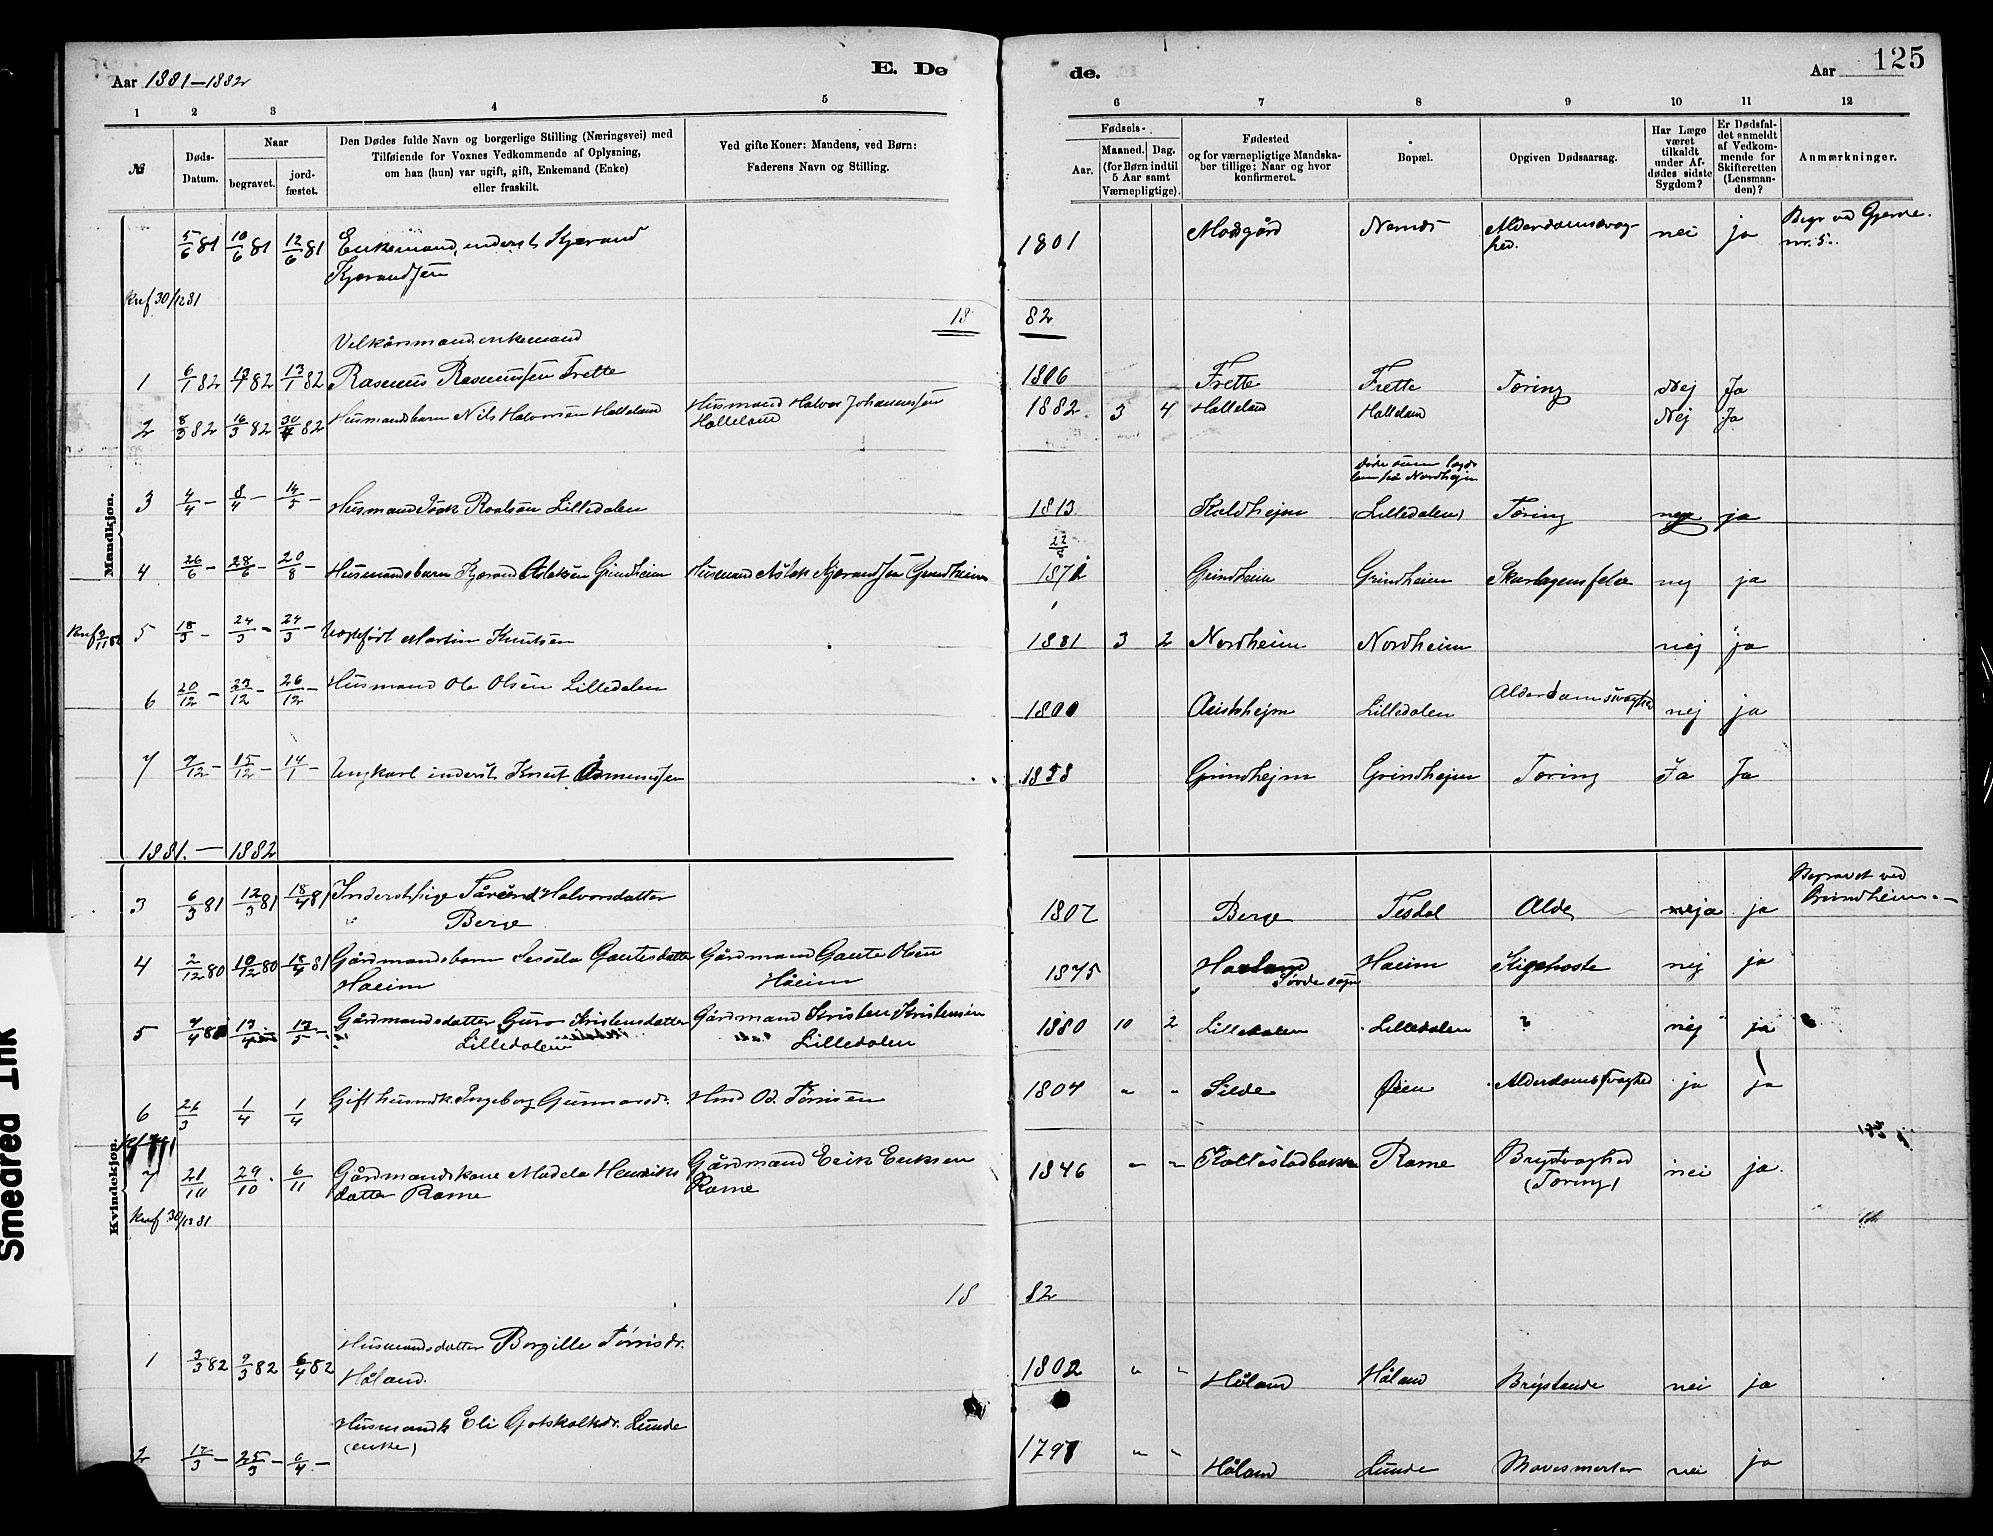 125
Aar 1881-1882
E. Dø
de.
Aar
1 2 3 4 5
6 7 8 9 10 11 12
№
Døds-Datum.
Naar
begravet.
jord-fæstet.
Den Dødes fulde Navn og borgerlige Stilling (Næringsvei) med
Tilføiende for Voxnes Vedkommende af Oplysning,
om han (hun) var ugift, gift, Enkemand (Enke)
eller fraskilt.
Ved gifte Koner: Mandens, ved Børn:
Faderens Navn og Stilling.
Fødsels-
Aar.
Maaned.
Dag.
(for Børn indtil
5 Aar samt
Værnepligtige).
Fødested
og for værnepligtige Mandska-
ber tillige: Naar og hvor
konfirmeret.
Bopæl.
Opgiven Dødsaarsag.
Har Læge
været
tilkaldt
under Af-
dødes sidste
Sygdom?
Er Dødsfal-
det anmeldt
af Vedkom-
mende for
Skifteretten
(Lensman-
den)?
Anmærkninger.
Mandkjøn.
5/6 81 10/6 81 12/6 81 Enkemand, inderst Kjærand Kjærandsen 1801 Alderdomssvaghed. nei ja Begr ved Gjerde nr. 5.
Knf 30/12 81
18 82
Velkårsmand enkemand
1 6/1 82 13/1 82 13/1 82 Rasmus Rasmussen Frette 1806 Frette Frette Tæring Nej Ja
2 8/3 82 16/3 82 30/4 82 Husmandsbarn Nils Halvorsen Halleland Husmand Halvor Johannessen Halleland 1882 3 4 Halleland Halleland Nej Ja
3 4/4 - 8/4 - 14/5 - Husmand Roalsen Lilledalen 1813 Kaldhejm døde som lægdslem på Nordhejm (Lilledalen) Tæring nej ja
4 26/6 - 28/6 - 20/8 - Husmandsbarn Kjærand Aslaksen Grindheim Husmand Aslak Kjærandsen Grindheim 22/8 1871 Grindheim Grindheim Skarlagensfeber nej ja
Knf 9/11 82
5 18/3 - 24/3 - 24/3 - Uægtefødt Martin Knutsen 1881 3 2 Nordheim Nordheim nej ja
6 20/12 - 23/12 - 26/12 - Husmand Ole Olsen Lilledalen 1800 Lilledalen Alderdomssvaghed nej ja
7 9/12 - 15/12 - 14/1 - Ungkarl inderst Knut Osmundsen 1858 Grindhejm Grindhejm Tæring Ja Ja
1881. - 1882
Kvindekjøn.
3 6/3 81 12/3 81 18/4 81 Inderst pige Halvorsdatter Berge 1807 Berge Tesdal Alde ja ja Begravet ved Grindheim.
4 2/12 80 10/12 80 18/4 81 Gårdmandsbarn Gautesdatter Haeim Gårdmand Gaute Olsen Haeim 1875 Sovde sogn Haeim Kighoste nej ja
5 Gårdmandsdatter Guro Kristensdatter Lilledalen Gårdmand Kristen Kristensen Lilledalen 1880 10 2 Lilledalen Lilledalen ? nej ja
6 26/3 1/4 1/4 Gift husmdk. Ingeborg Gunnarsdr. Hmd Od. Tørrisen 1804 " " Silde Øien Alderdomssvaghed ja ja
7 21/10 29/10 6/11 Gårdmandskone Madela Henriksdatter Rame Gårdmand Erik Eriksen Rame 1846 " " Rame Brystsvaghed (Tæring) nei ja
Knf 30/12 81
18 82
1 3/3 82 9/3 82 6/4 82 Husmandsdatter Borgille Tørrisdr. Håland. 1802 " " Håland Håland nei ja
2 17/3 - 25/3 - 6/4 - Husmandk Eli Gotskalksdr. Lunde (enke) 1791 " " Håland Lunde nei ja
Smedred Ink